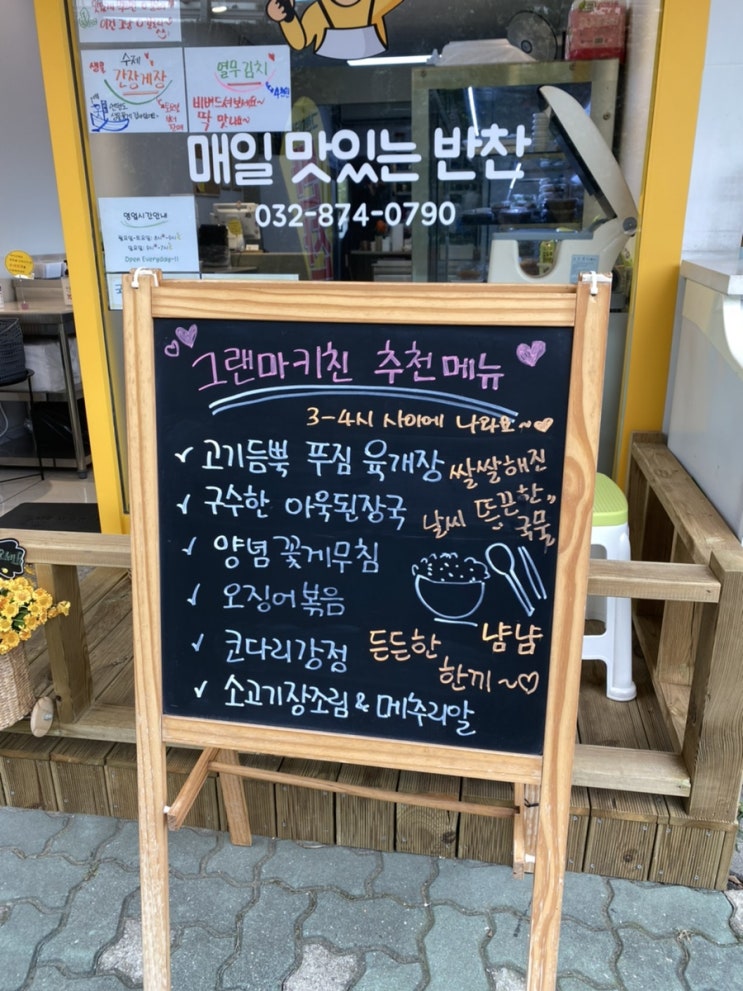 수제
간장게장
열무김치
딱 맛나요~
매일 맛있는 반찬
032-874-0790
영업시간안내
Open Everyday~!!
그랜마키친 추천메뉴
3-4시 사이에 나와요~♡
✓ 고기듬뿍 푸짐 육개장
쌀쌀해진
✓ 구수한 아욱된장국
날씨 뜨끈한"
국물
✓ 양념꽃게무침
✓ 오징어볶음
✓ 코다리강정
든든한 냠냠
한끼~♡
✓ 소고기장조림 & 메추리알